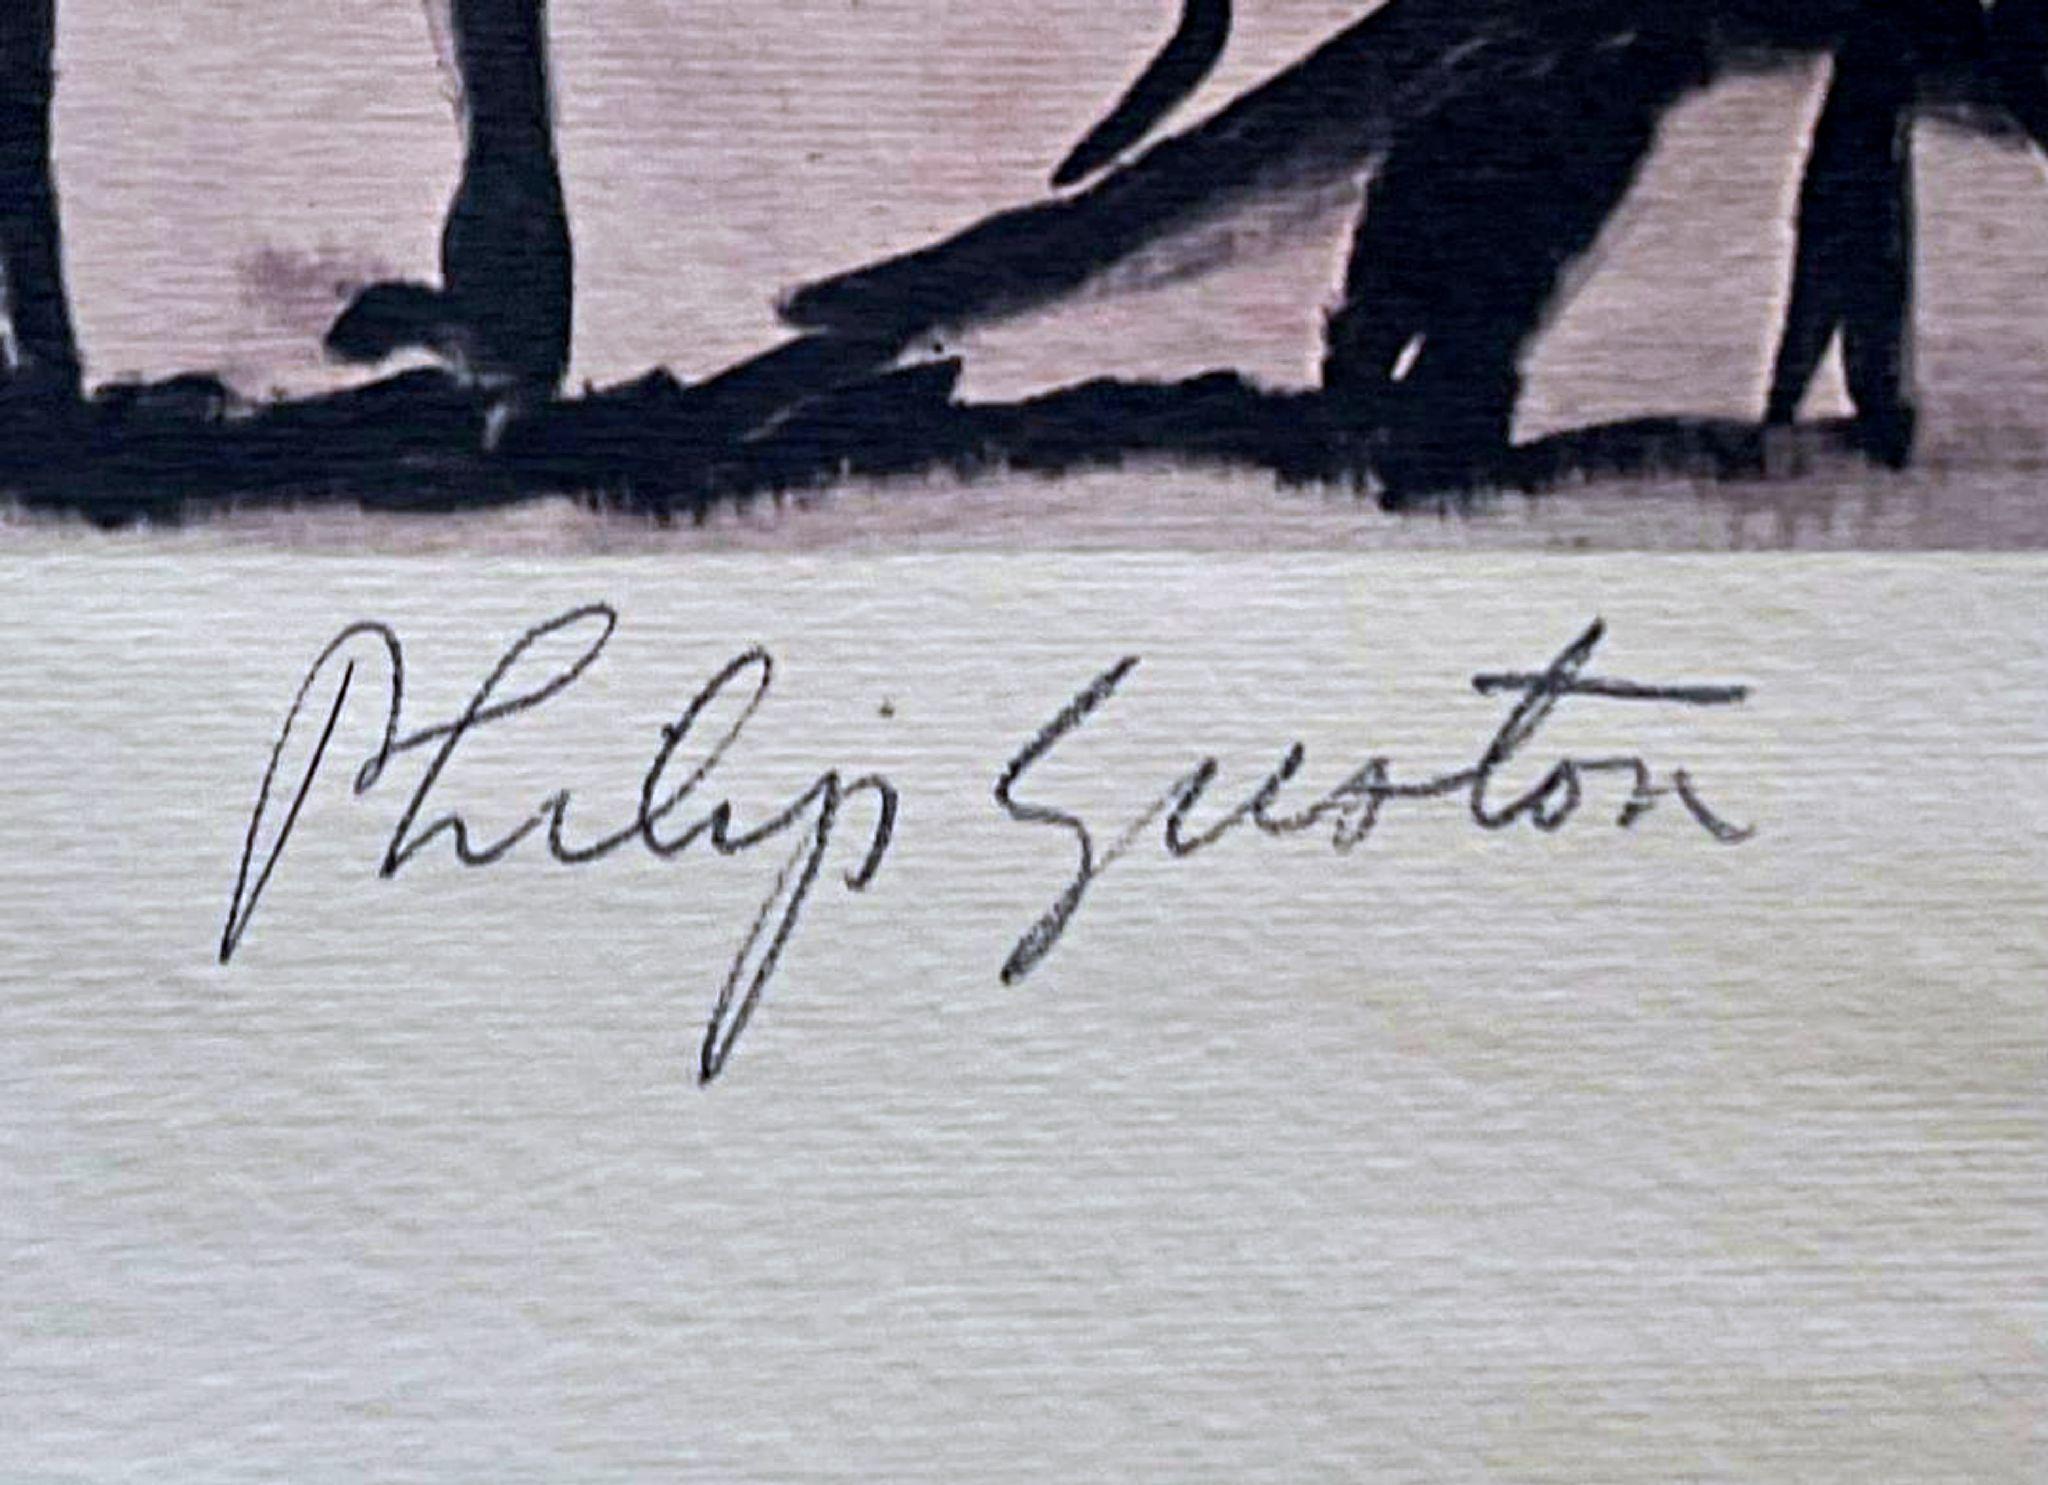 Philip Guston